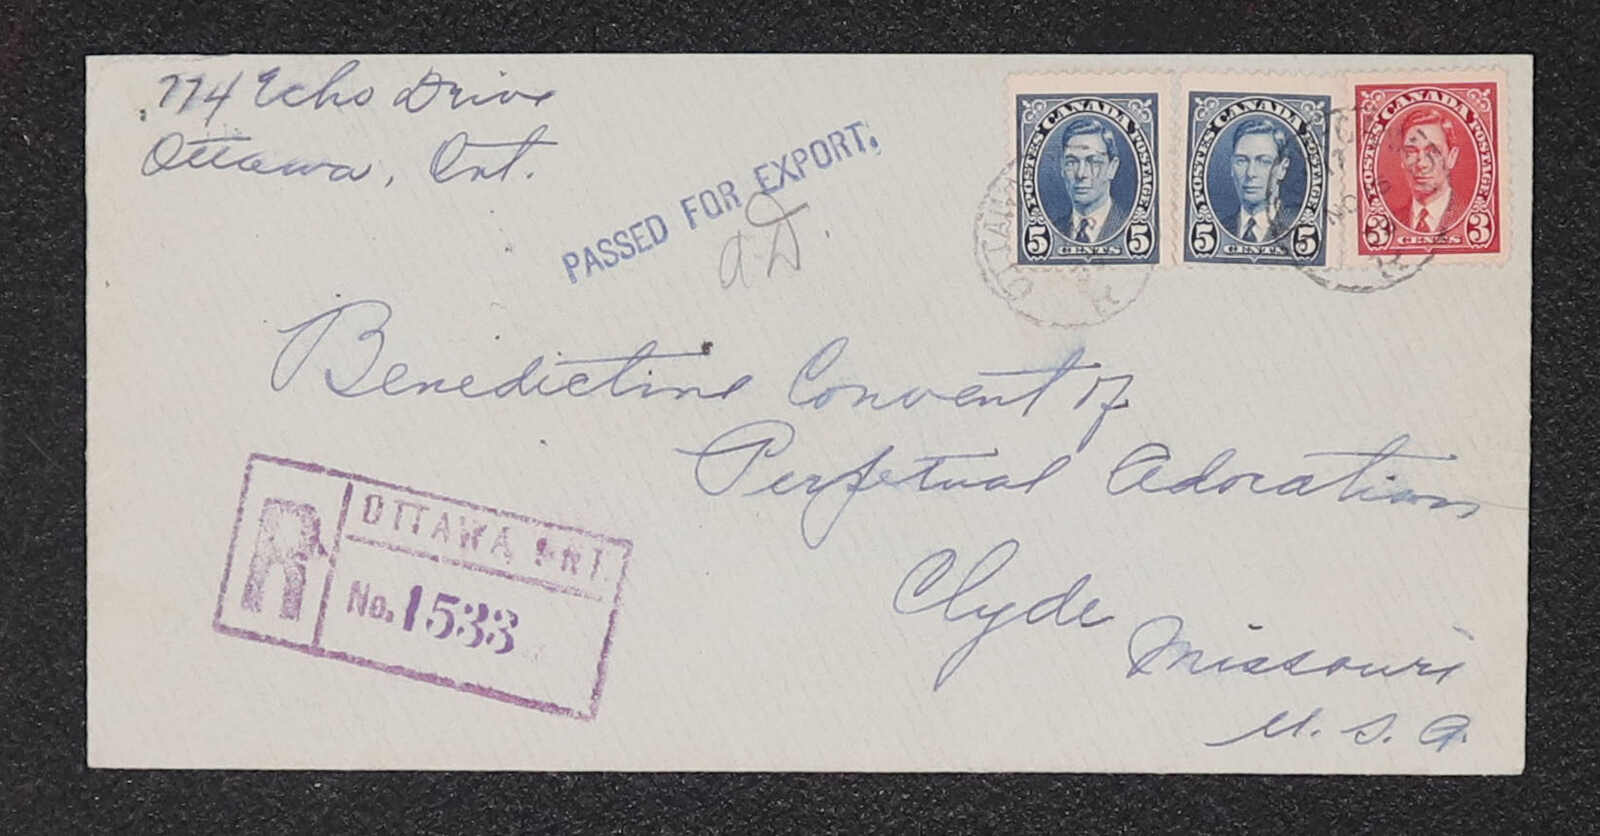 774 Echo Drive
Ottawa, Ont.
PASSED FOR EXPORT.
a D.
POSTES CANADA POSTAGE
5 CENTS 5
POSTES CANADA POSTAGE
5 CENTS 5
POSTES CANADA POSTAGE
3 CENTS 3
OTTAWA
Benedictine Convent of
Perpetual Adoration
Clyde
Missouri
U. S. A.
R
OTTAWA ONT.
No. 1533